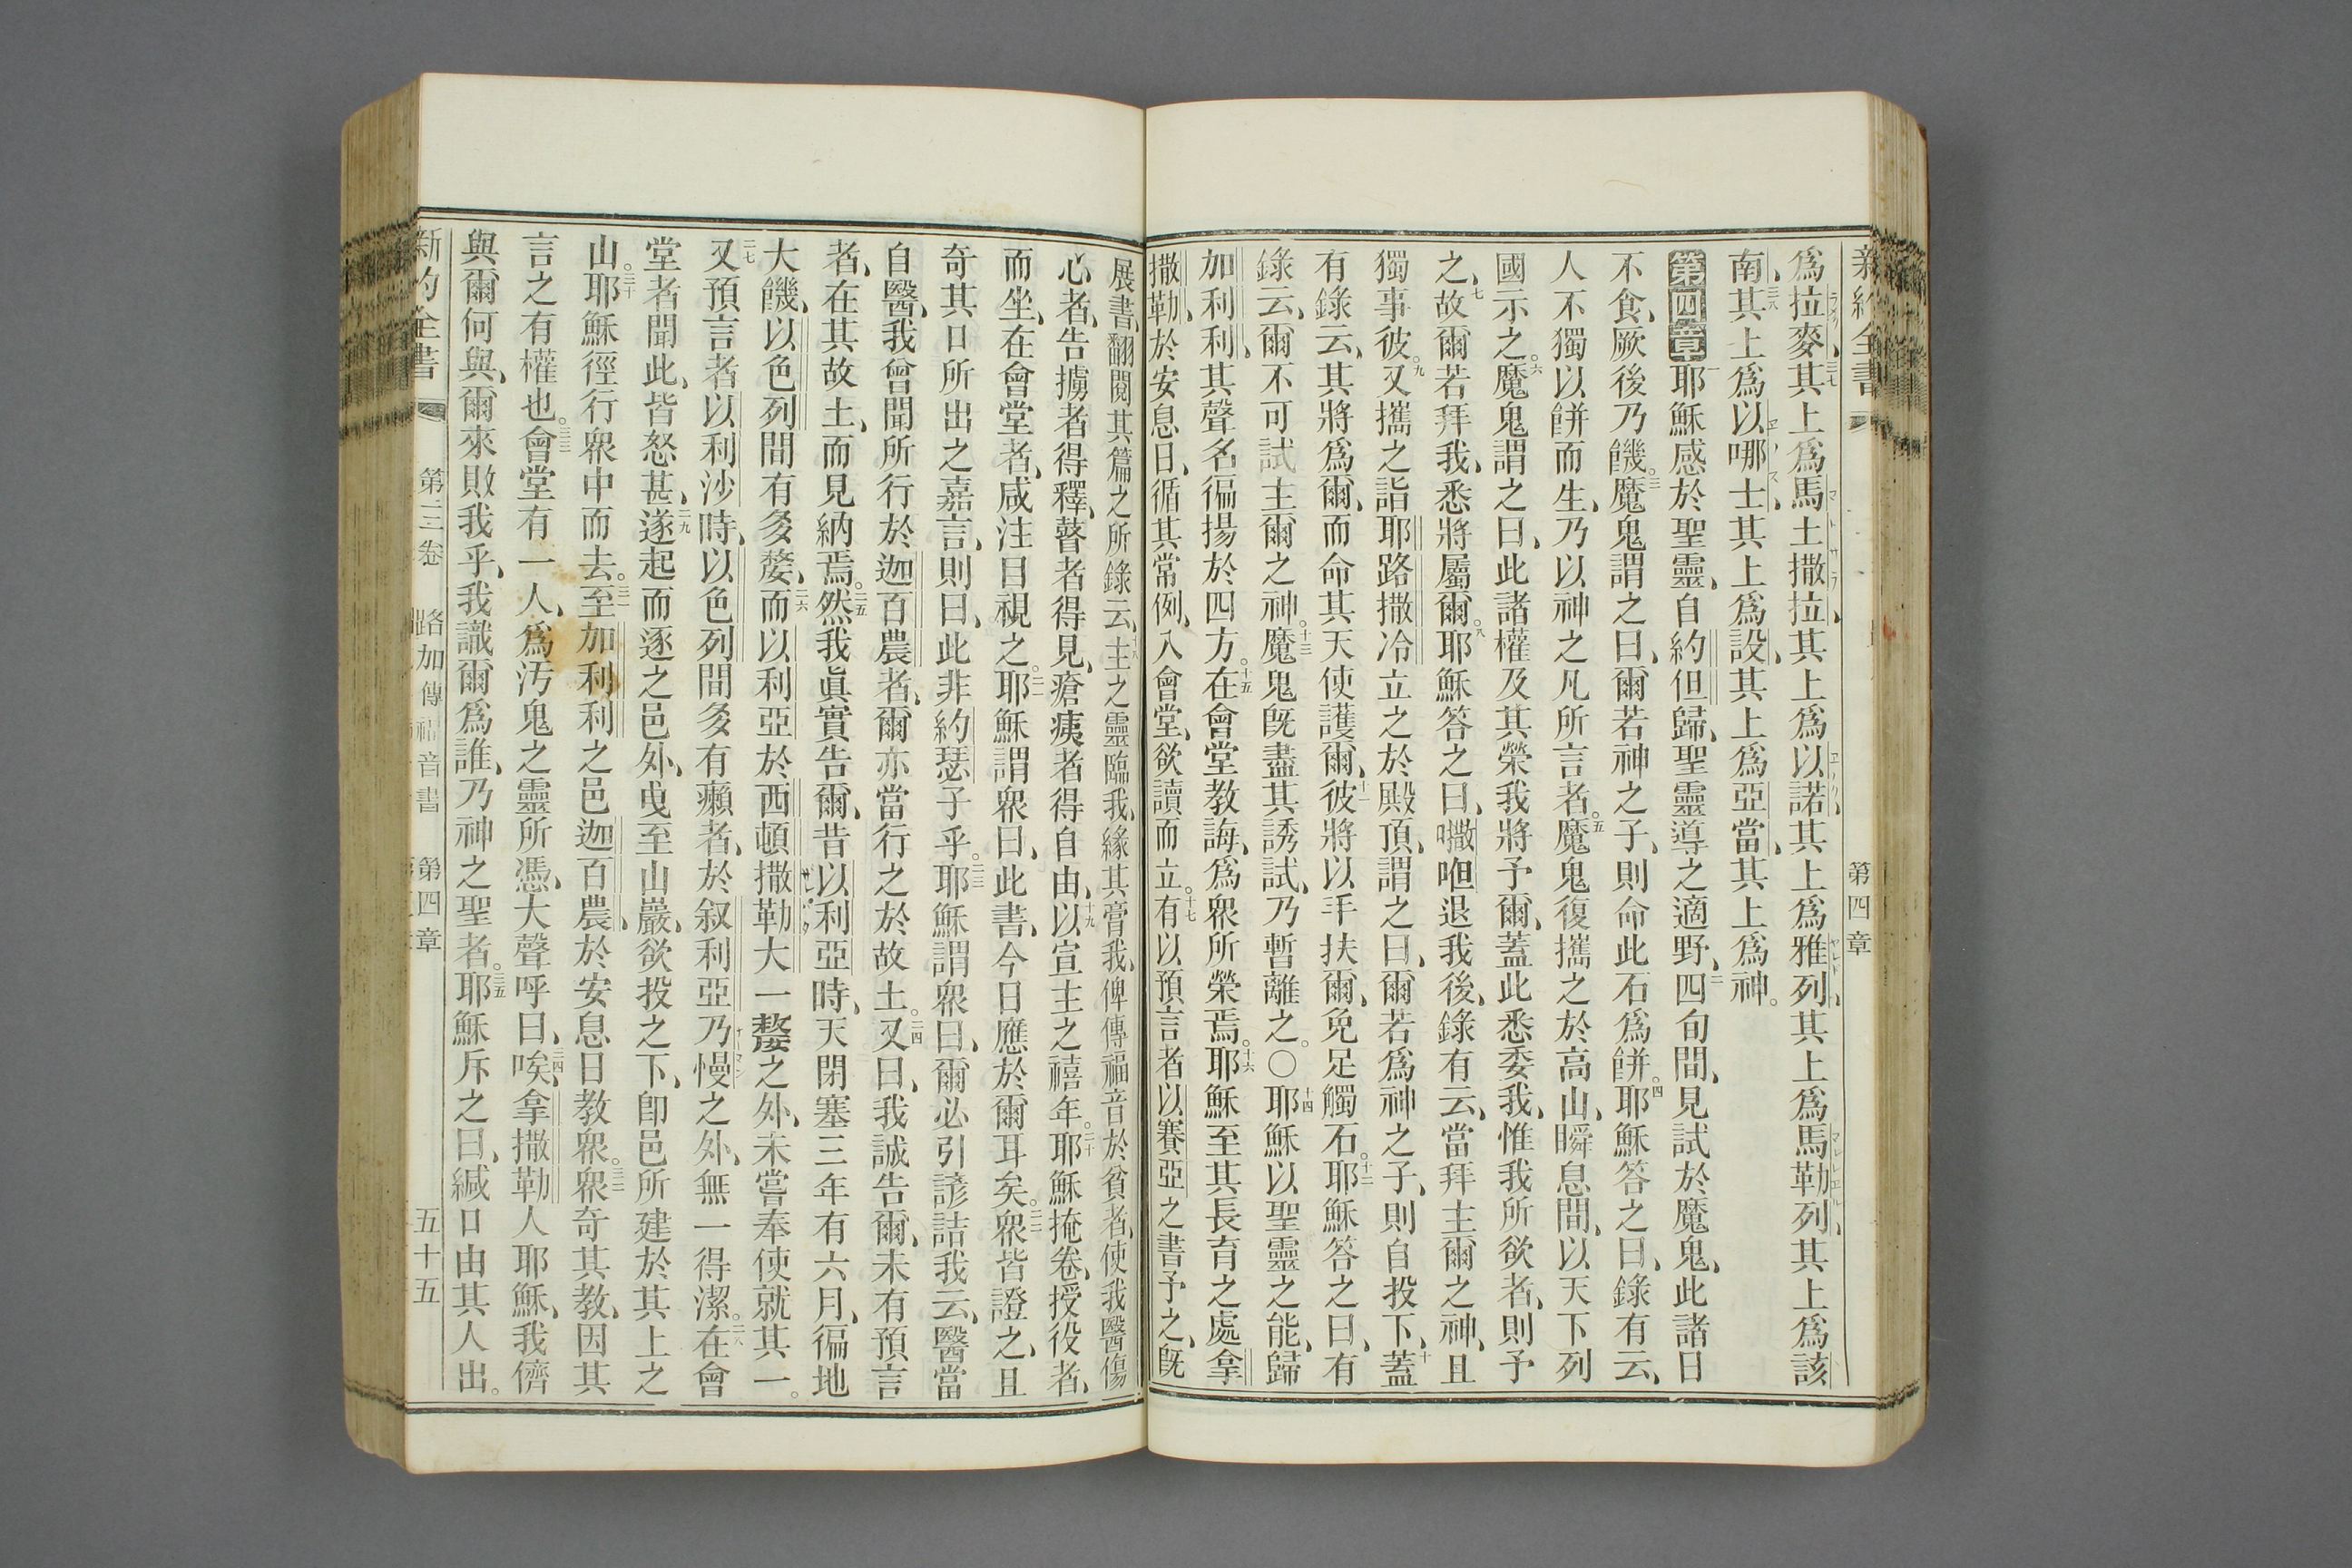 新約全書 第四章
爲拉麥、三七其上爲馬土撒拉、其上爲以諾、其上爲雅列、其上爲馬勒列、其上爲該
南、三八其上爲以哪士、其上爲設、其上爲亞當、其上爲神。
第四章一耶穌感於聖靈、自約但歸、聖靈導之適野、二四旬間、見試於魔鬼、此諸日
不食、厥後乃饑。三魔鬼謂之曰、爾若神之子、則命此石爲餅。四耶穌答之曰、錄有云、
人不獨以餅而生、乃以神之凡所言者。五魔鬼復攜之於高山、瞬息間、以天下列
國示之。六魔鬼謂之曰、此諸權及其榮我將予爾、蓋此悉委我、惟我所欲者、則予
之、七故爾若拜我、悉將屬爾。八耶穌答之曰、㗔呾退我後、錄有云、當拜主爾之神、且
獨事彼。九又攜之詣耶路撒冷立之於殿頂、謂之曰、爾若爲神之子、則自投下、十蓋
有錄云、其將爲爾、而命其天使護爾、十一彼將以手扶爾、免足觸石。十二耶穌答之曰、有
錄云、爾不可試主爾之神。十三魔鬼旣盡其誘試、乃暫離之。○十四耶穌以聖靈之能、歸
加利利、其聲名徧揚於四方。十五在會堂教誨、爲衆所榮焉。十六耶穌至其長育之處拿
撒勒、於安息日、循其常例、入會堂、欲讀而立。十七有以預言者以賽亞之書予之、旣
展書、翻閱其篇之所錄云、十八主之靈臨我、緣其膏我、俾傳福音於貧者、使我醫傷
心者、告擄者得釋、瞽者得見、瘡痍者得自由、十九以宣主之禧年。二十耶穌掩卷、授役者、
而坐、在會堂者、咸注目視之。二一耶穌謂衆曰、此書、今日應於爾耳矣。二二衆皆證之、且
奇其口所出之嘉言、則曰、此非約瑟子乎。二三耶穌謂衆曰、爾必引諺詰我云、醫當
自醫、我曾聞所行於迦百農者、爾亦當行之於故土。二四又曰、我誠告爾、未有預言
者、在其故土、而見納焉。二五然我眞實告爾、昔以利亞時、天閉塞三年有六月、徧地
大饑、以色列間有多嫠、二六而以利亞於西頓撒勒大一嫠之外、未嘗奉使就其一。
二七又預言者以利沙時、以色列間多有癩者、於叙利亞乃慢之外、無一得潔。二八在會
堂者聞此、皆怒甚、二九遂起而逐之邑外、曳至山巖、欲投之下、卽邑所建於其上之
山。三十耶穌徑行衆中而去。三一至加利利之邑迦百農、於安息日教衆。三二衆奇其教、因其
言之有權也。三三會堂有一人、爲汚鬼之靈所憑、大聲呼曰、三四唉、拿撒勒人耶穌、我儕
與爾何與、爾來敗我乎、我識爾爲誰、乃神之聖者。三五耶穌斥之曰、緘口由其人出。
新約全書 第三卷 路加傳福音書 第四章 五十五